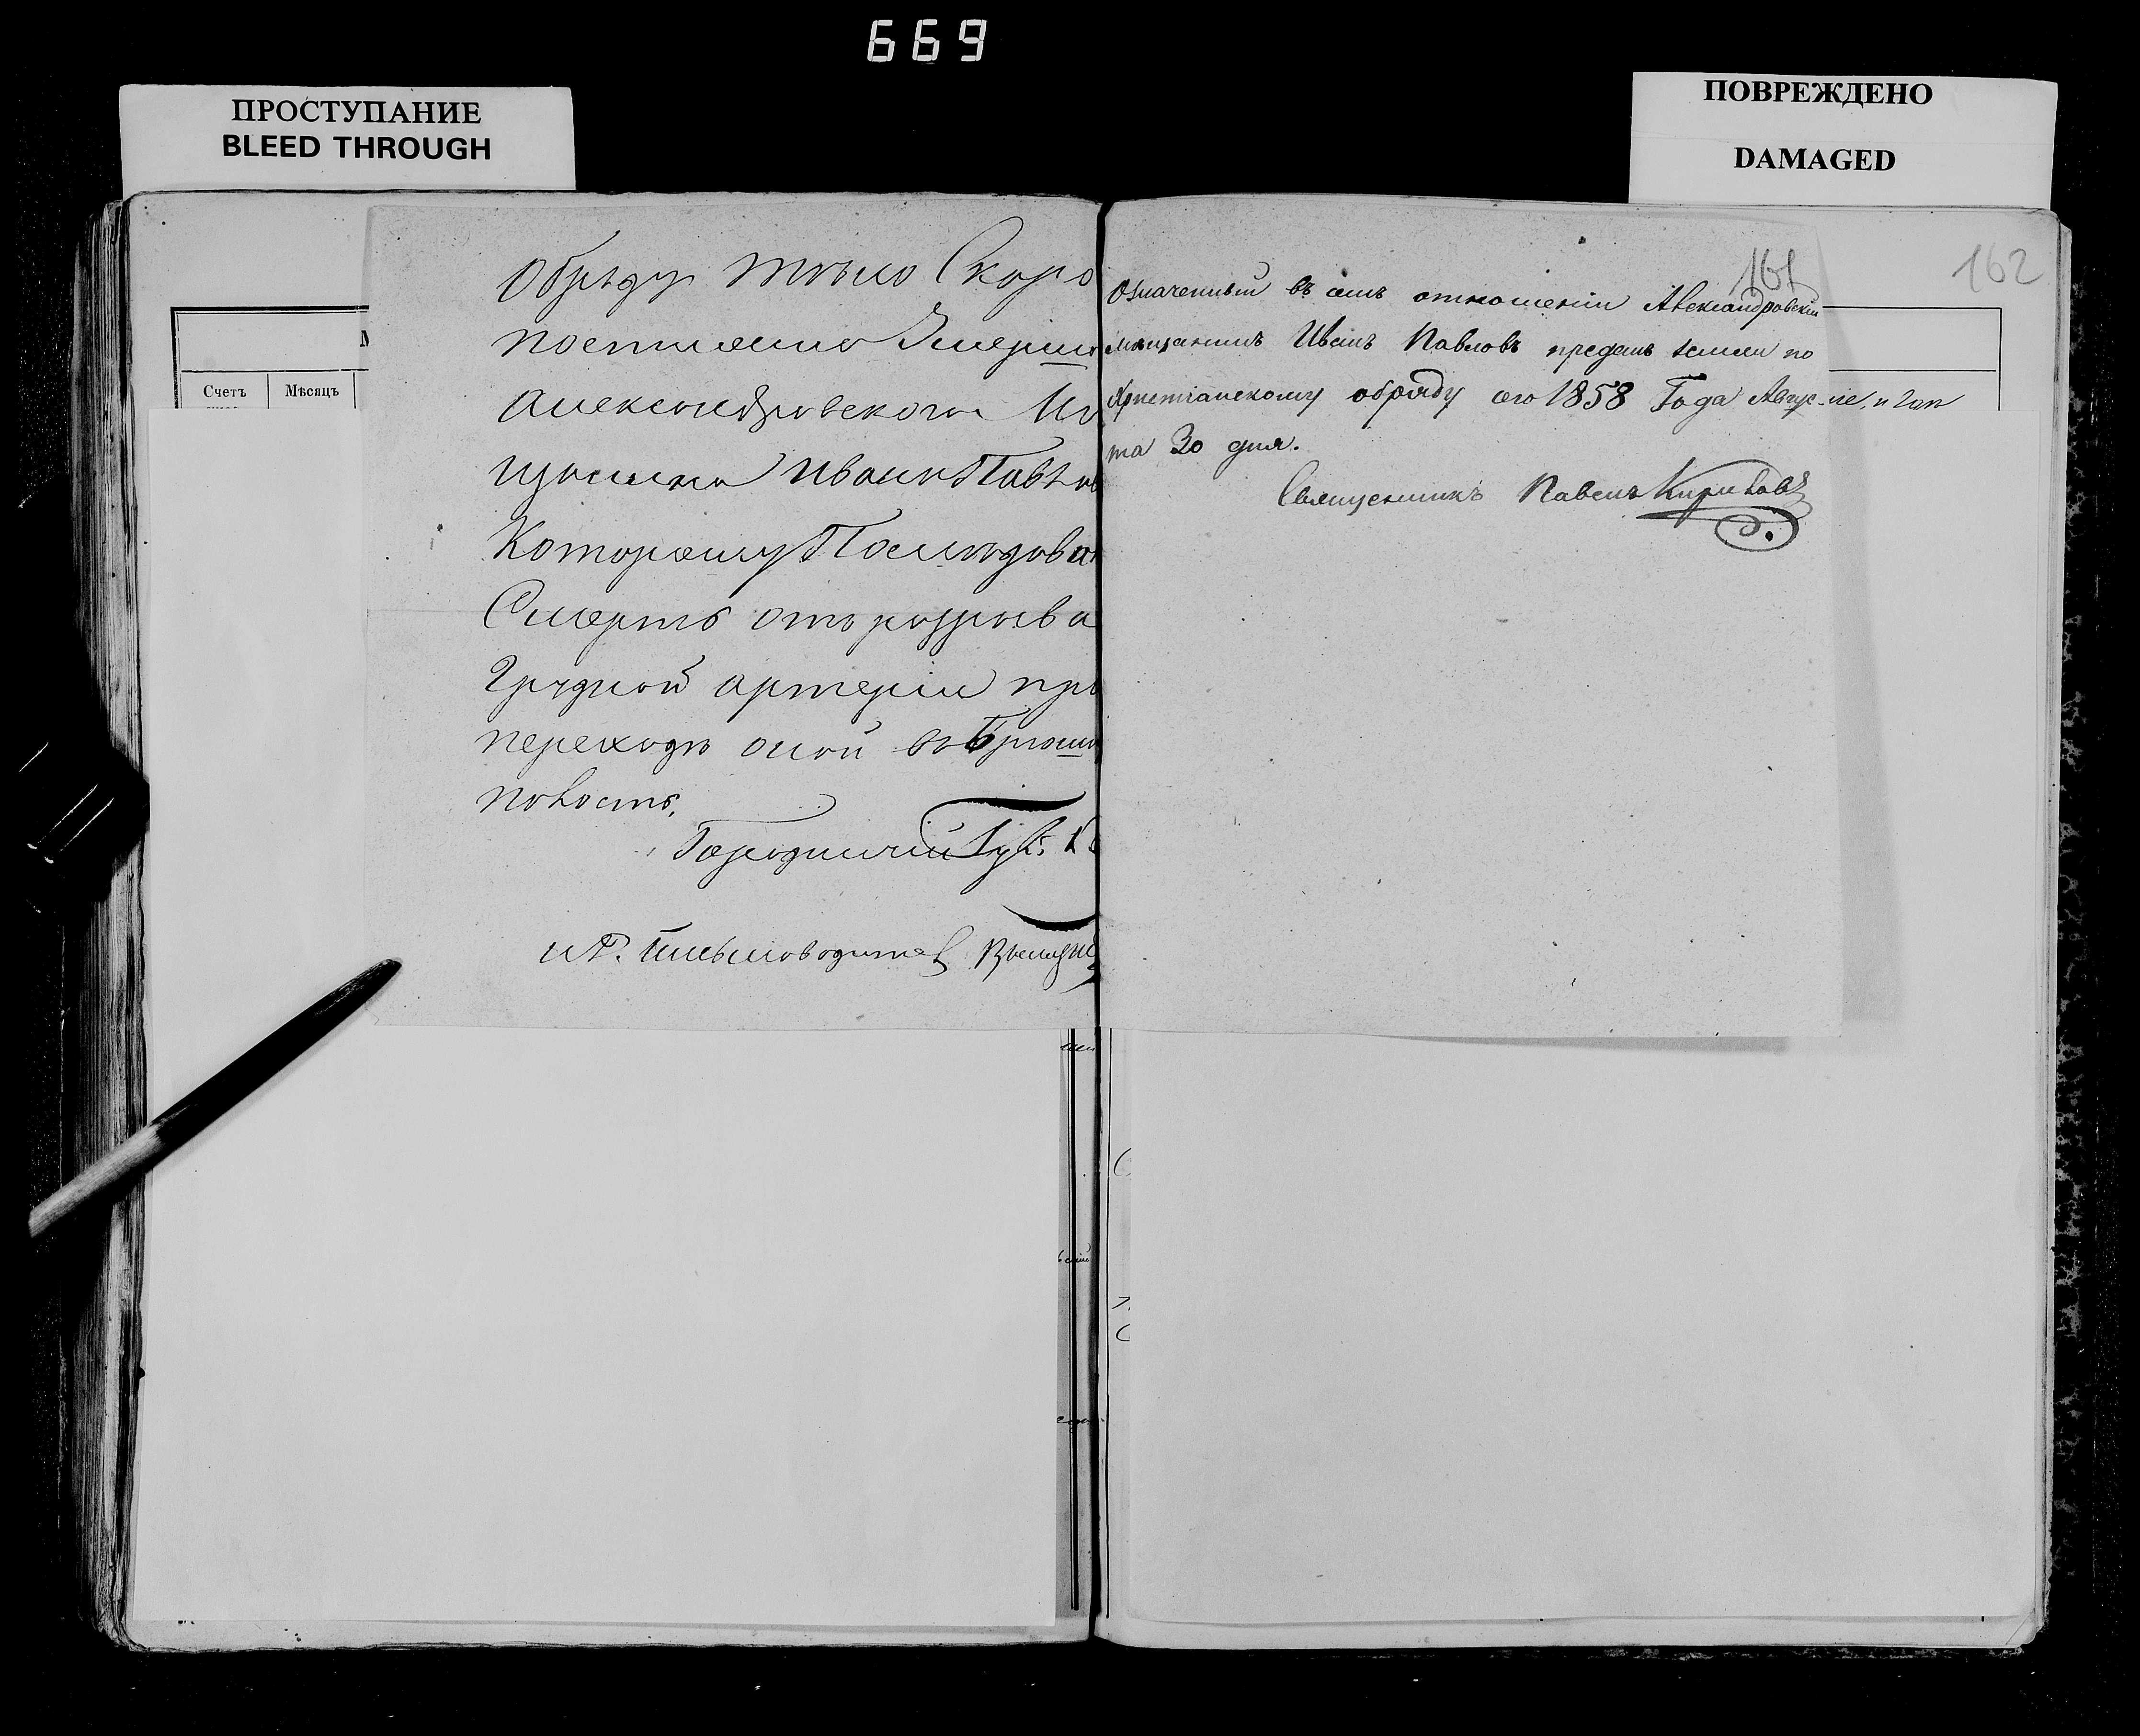 669
ПРОСТУПАНИЕ
BLEED THROUGH
ПОВРЕЖДЕНО
DAMAGED
Счетъ Мѣсяцъ
обряду тѣло Скоро
постижно Умерш
Александровского Мѣ
щанина Ивана Павлов
Которому Послѣдова
Смерть отъ разрыва
Грудной артеріи при
переходѣ оной въ Брюшн
полость.
Городничій
Письмоводитель
161
162
Означенный въ семъ отношеніи Александровскій
мѣщанинъ Иванъ Павловъ преданъ земли по
Христіанскому обряду сего 1858 Года Авгус-
та 30 дня.
Священникъ Павелъ Кириловъ